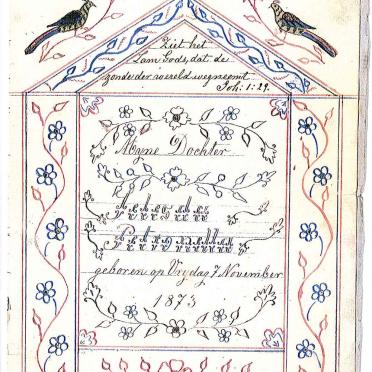 Ziet het
Lam Gods, dat de
zonde der wereld wegneemt
Joh: 1: 29.
Myne Dochter
geboren op Vrydag 7 November
1873